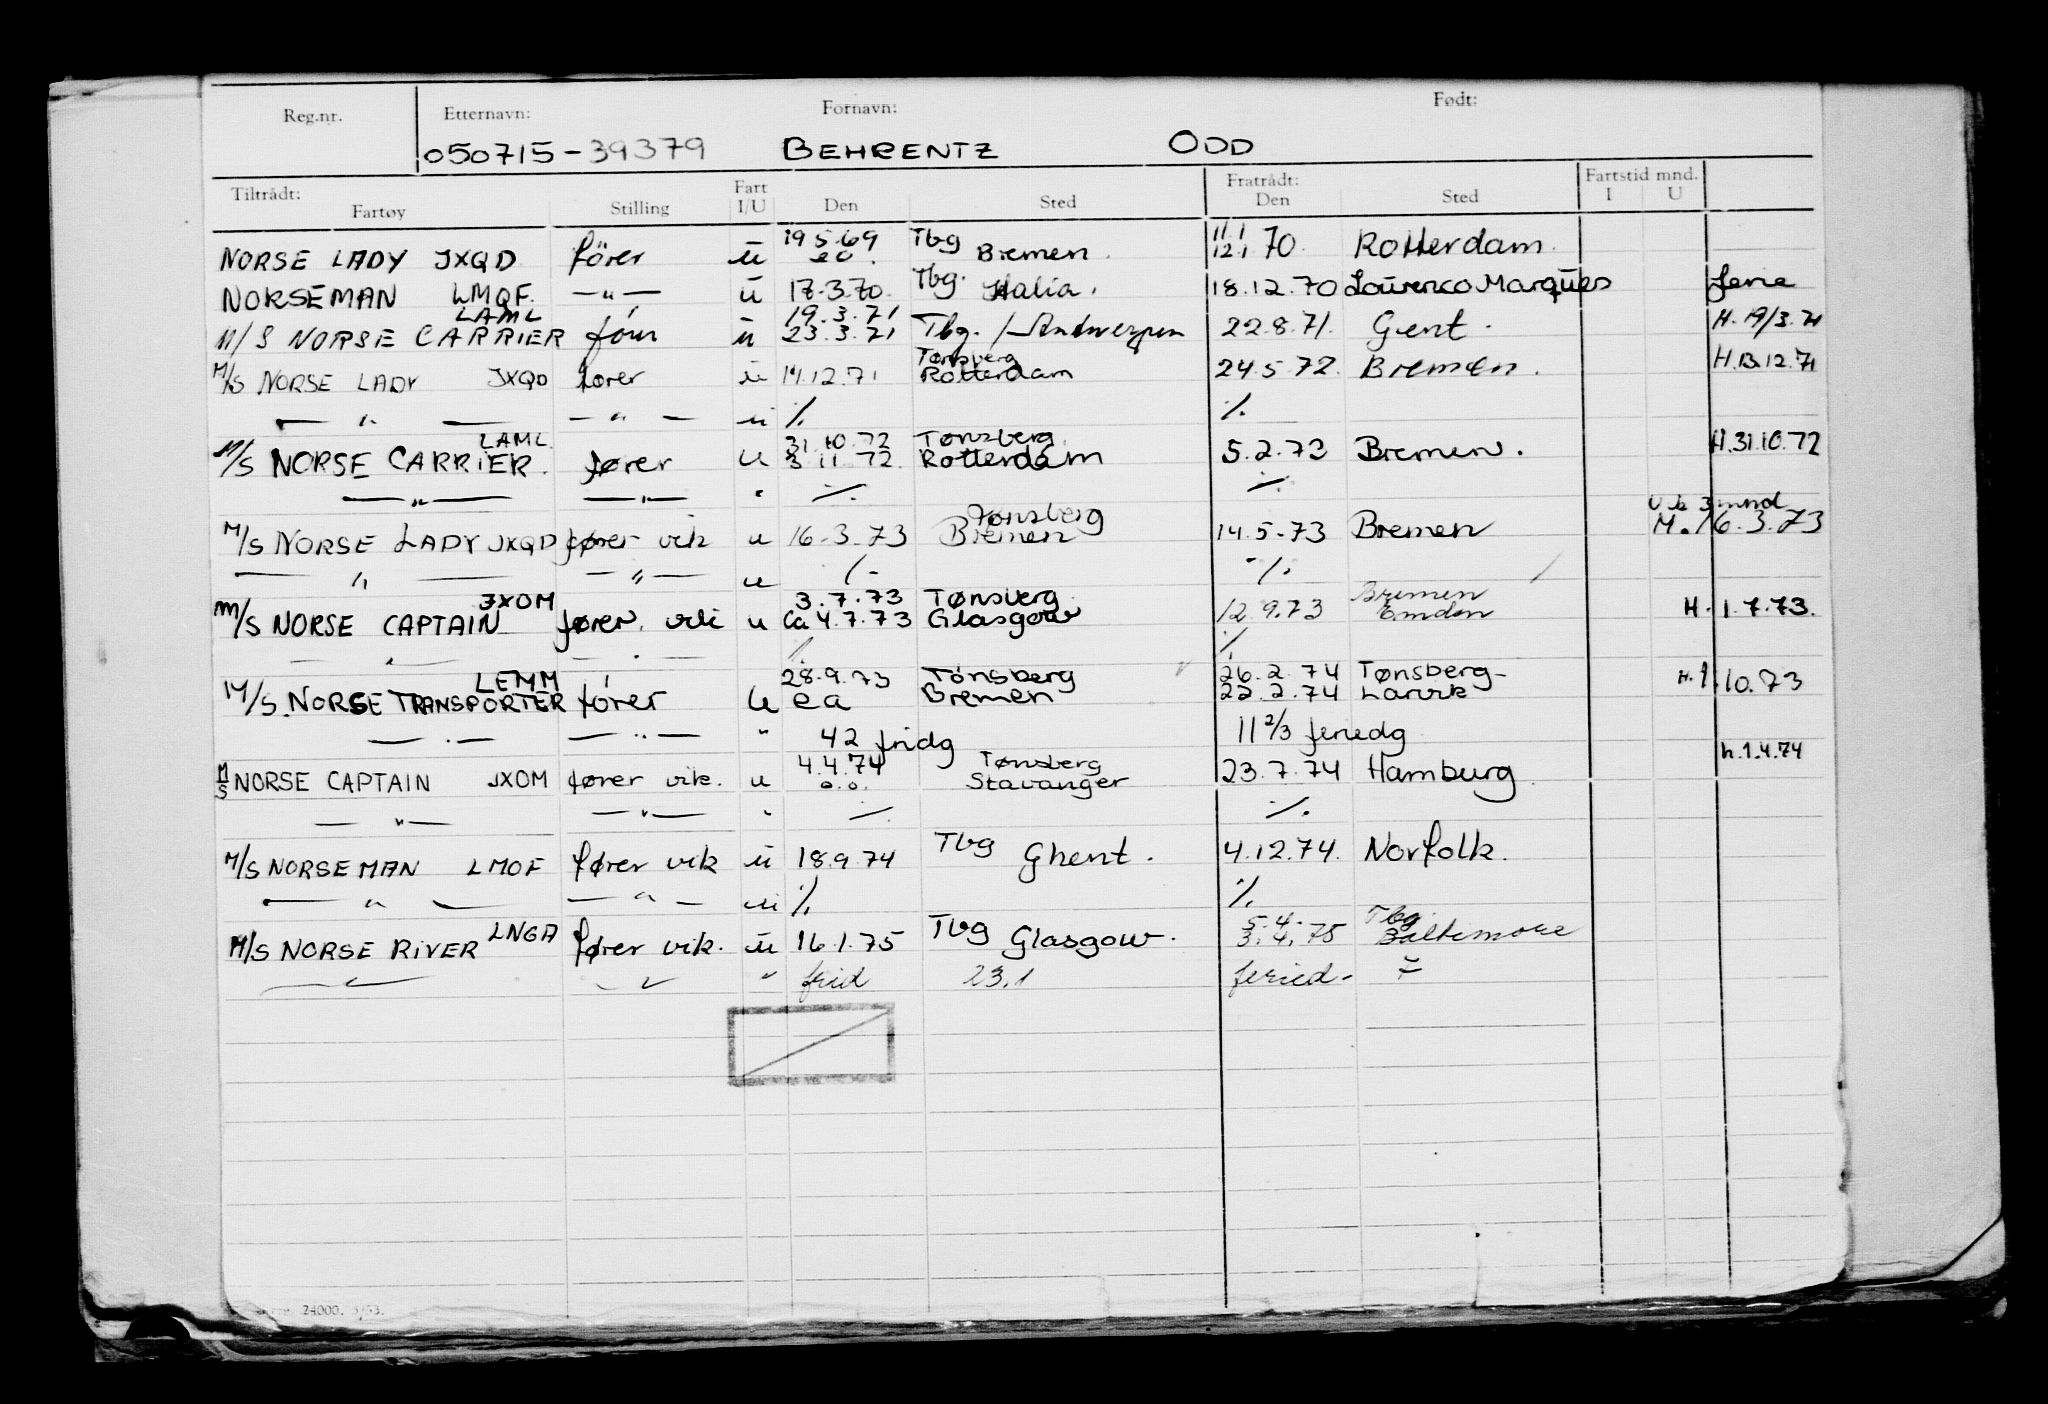 Reg.nr. Etternavn: Fornavn: Født:
050715-39379 BEHRENTZ ODD
Tiltrådt: Fart Fratrådt: Fartstid mnd.
Fartøy Stilling I/U Den Sted Den Sted I U
19.5.69 Tbg 11.1
NORSE LADY JXQD fører ū eo. Bremen. 12.1 70. Rotterdam.
NORSEMAN LMQF. —"— ū 17.3.70. Tbg. Italia. 18.12.70 Lourenco Marques ferie
LAML 19.3.71
M/S NORSE CARRIER fører ū 23.3.71 Tbg. / Antwerpen 22.8.71. Gent. H. 19/3.71
Tønsberg
M/S NORSE LADY JXQD fører ū 14.12.71 Rotterdam 24.5.72. Bremen. H.13.12.71
— " — — " — ū ./. ./.
LAML 31.10.72 Tønsberg
M/S NORSE CARRIER. fører u 3.11.72. Rotterdam 5.2.73 Bremen. H.31.10.72
— " — — " — " ./. ./.
Tønsberg U.b 3 mnd
M/S NORSE LADY JXQD fører vik u 16.3.73 Bremen 14.5.73 Bremen M.16.3.73
— " — — " — u ./. ./.
JXOM 3.7.73 Tønsberg Bremen
M/S NORSE CAPTAIN fører. vik u ca 4.7.73 Glasgow 12.9.73 Emden H. 1.7.73.
— " — — " — ./. ./.
LEMM 28.9.73 Tønsberg 26.2.74 Tønsberg-
M/S. NORSE TRANSPORTER fører u ea Bremen 22.2.74 Larvik H.1.10.73
— " — — " — " 42 fridg 11 2/3 feriedg
4.4.74 Tønsberg h.1.4.74
M/S NORSE CAPTAIN JXOM fører vik. u o.o. Stavanger 23.7.74 Hamburg.
— " — — " — " ./. ./.
M/S NORSE MAN LMOF fører vik ū 18.9.74 Tbg Ghent. 4.12.74. Norfolk.
— " — — " — ū ./. ./.
LNGA 5.4. Tbg.
M/S NORSE RIVER fører vik. ū 16.1.75 Tbg Glasgow. 3.4.75 Baltimore
— " — — " — " frid 23,1 feried-
24000.